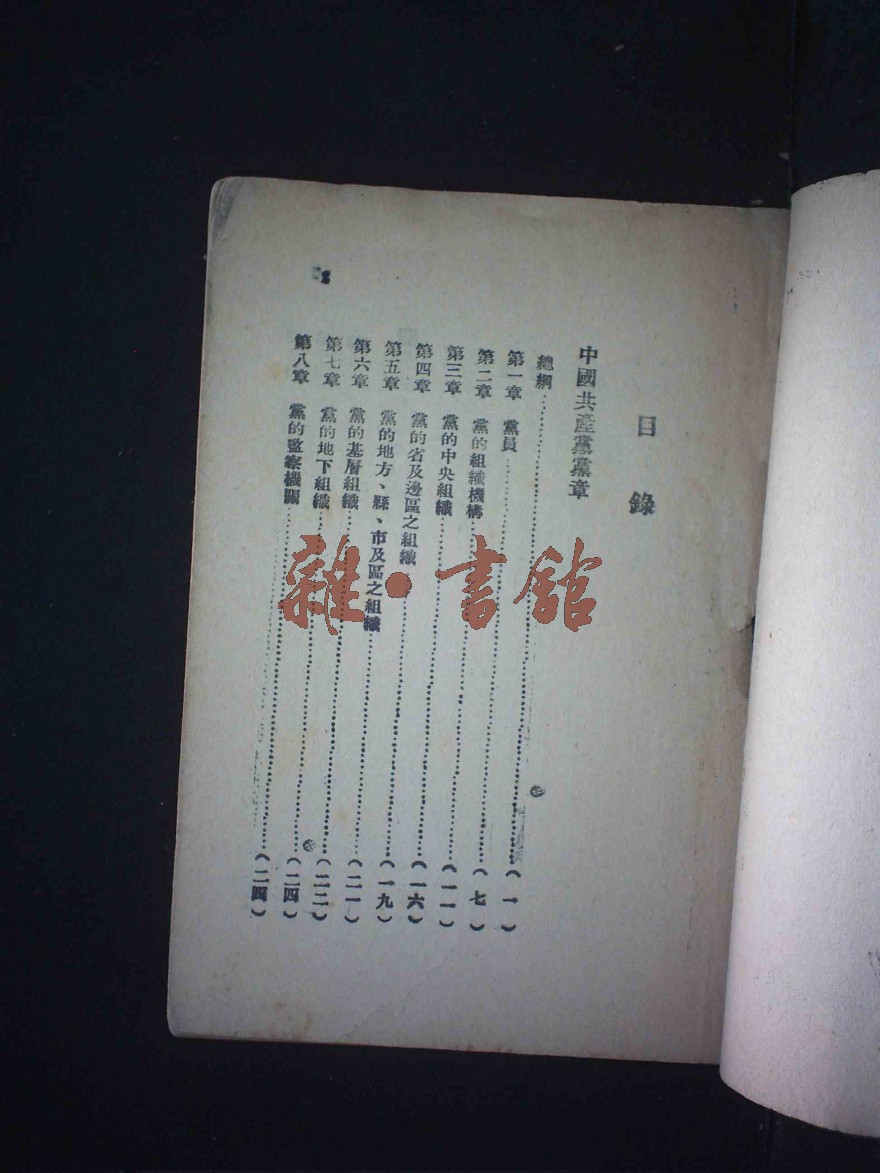 目錄
中國共產黨黨章
總綱……(一)
第一章 黨員……(七)
第二章 黨的組織機構……(一一)
第三章 黨的中央組織……(一六)
第四章 黨的省及邊區之組織……(一九)
第五章 黨的地方、縣、市及區之組織……(二一)
第六章 黨的基層組織……(二二)
第七章 黨的地下組織……(二四)
第八章 黨的監察機關……(二四)
雜·書館